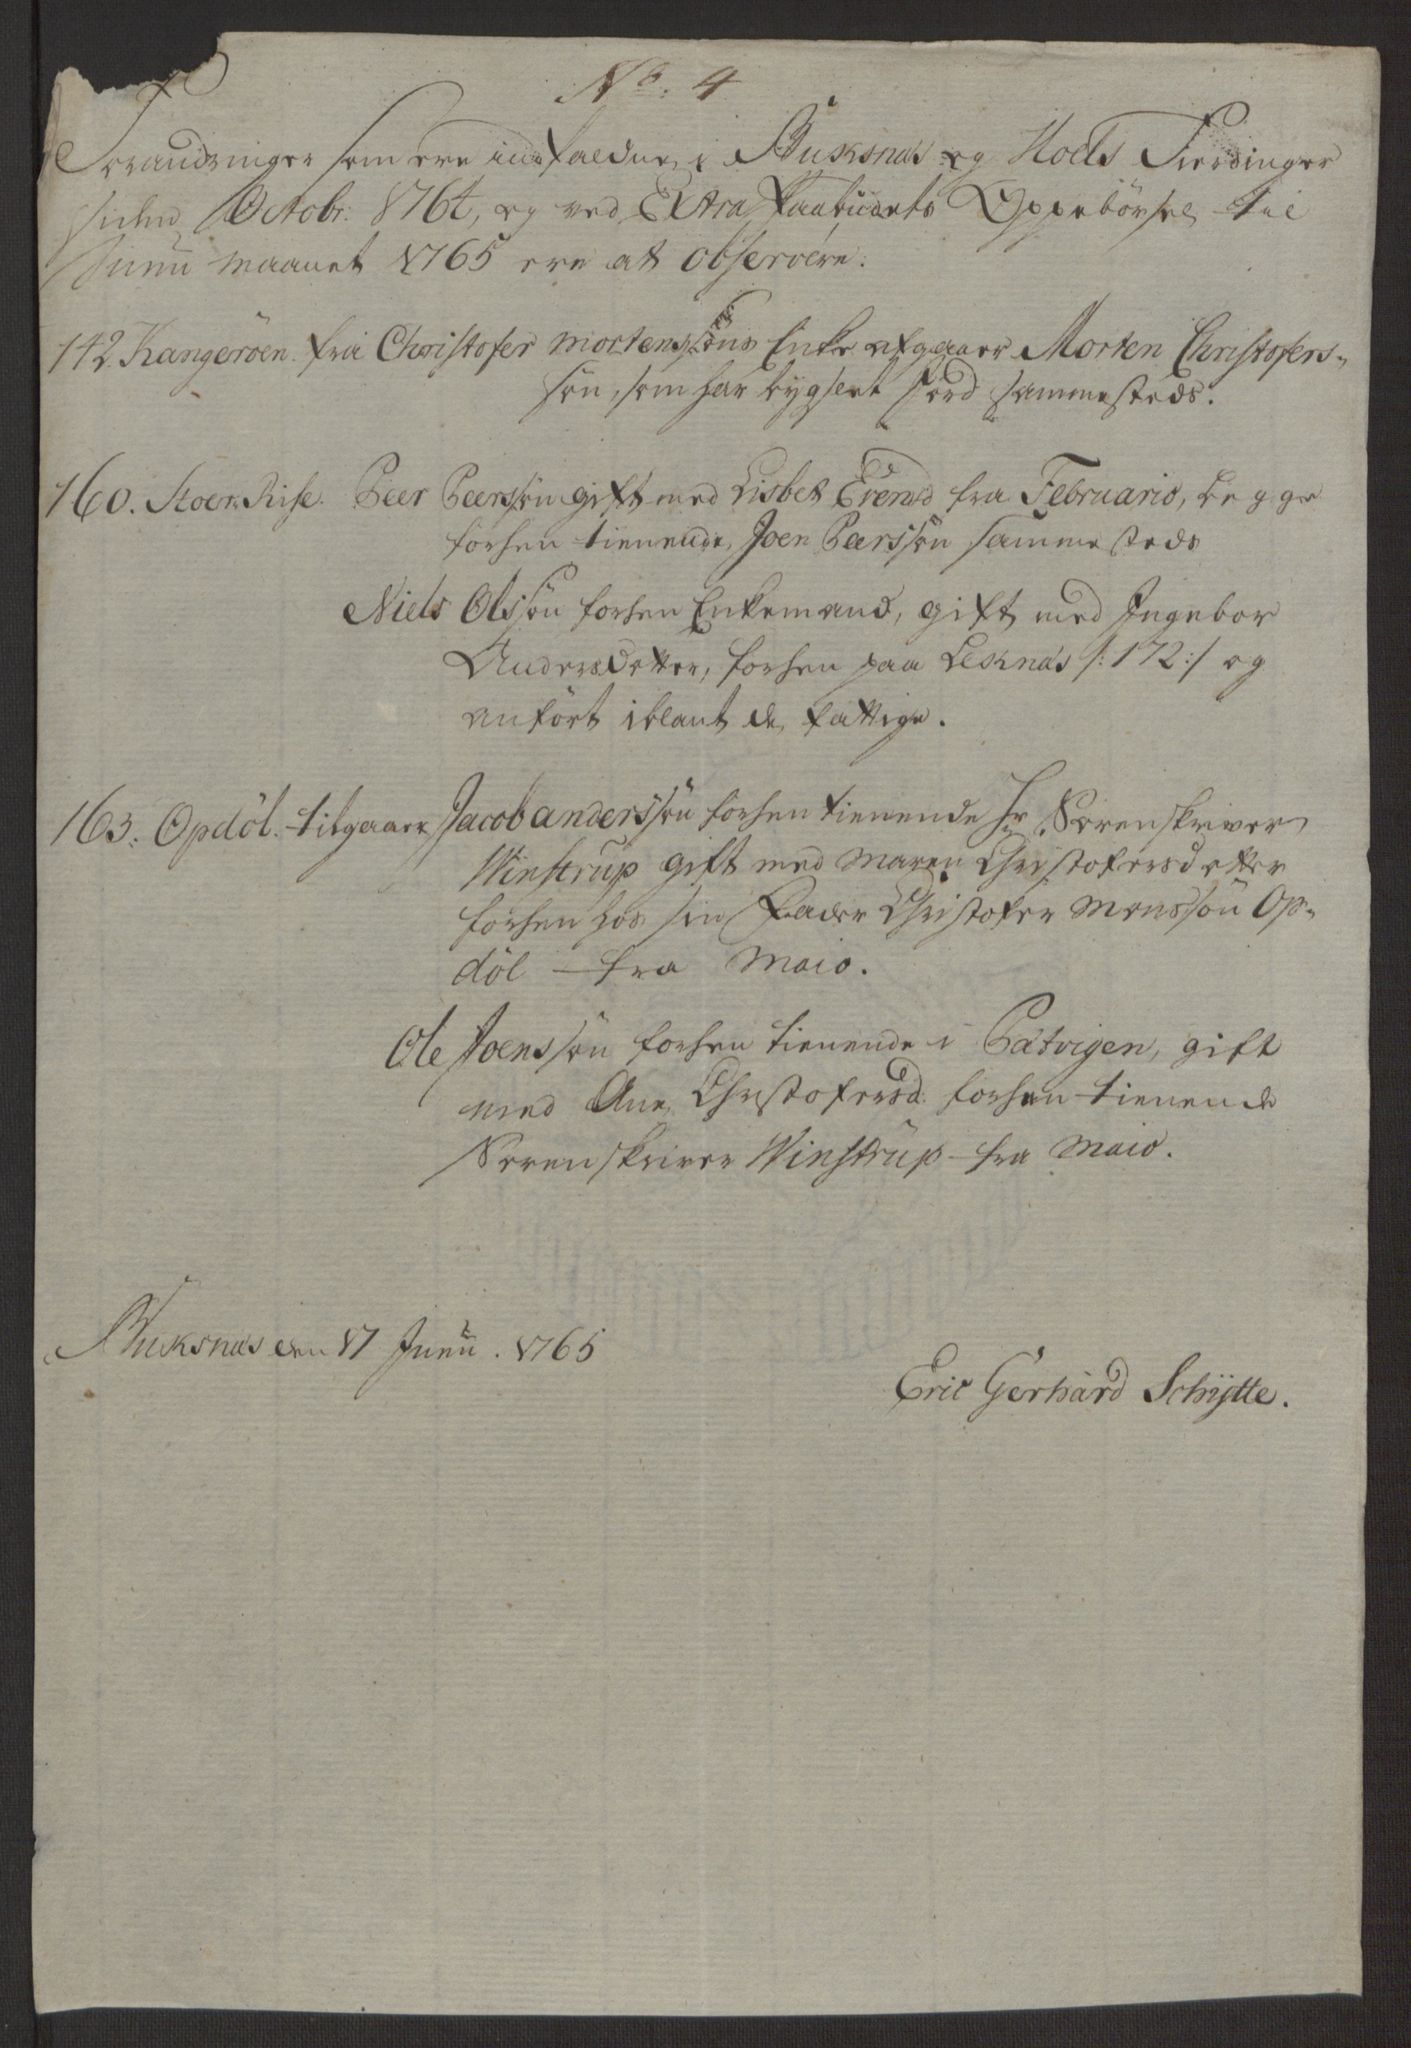 No. 4
Forandringer som ere indfaldne i Buksnæs og Hoels Fierdinger
siden Octobr: 1764, og ved Extra Paabudets Oppebörsel til
Junii maanet 1765 ere at observere.
142. Kangeröen. fra Christofer Mortenssöns Enke afgaaer Morten Christofers-
sön, som har bygslet Jord sammesteds.
160. Stoer Rise. Peer Peerssön gift med Lisbet Erensd fra Februario, begge
forhen tienende Joen Peerssön sammesteds
Niels Olssön forhen Enkemand, gift med Ingebor
Andersdotter, forhen paa Leknæs /: 172 :/ og
anfört iblant de fattige.
163. Opdöl. tilgaaer Jacob Anderssön forhen tienende Hr Sorenskriver
Winstrup gift med Maren Christofersdotter
forhen hos sin Fader Christofer Monssön Op-
döl - fra Maio.
Ole Joenssön forhen tienende i Petvigen, gift
med Ane Christofersd: forhen tienende
Sorenskriver Winstrup - fra Maio.
Buksnæs den 17 Junii. 1765
Eric Gerhard Schÿtte.